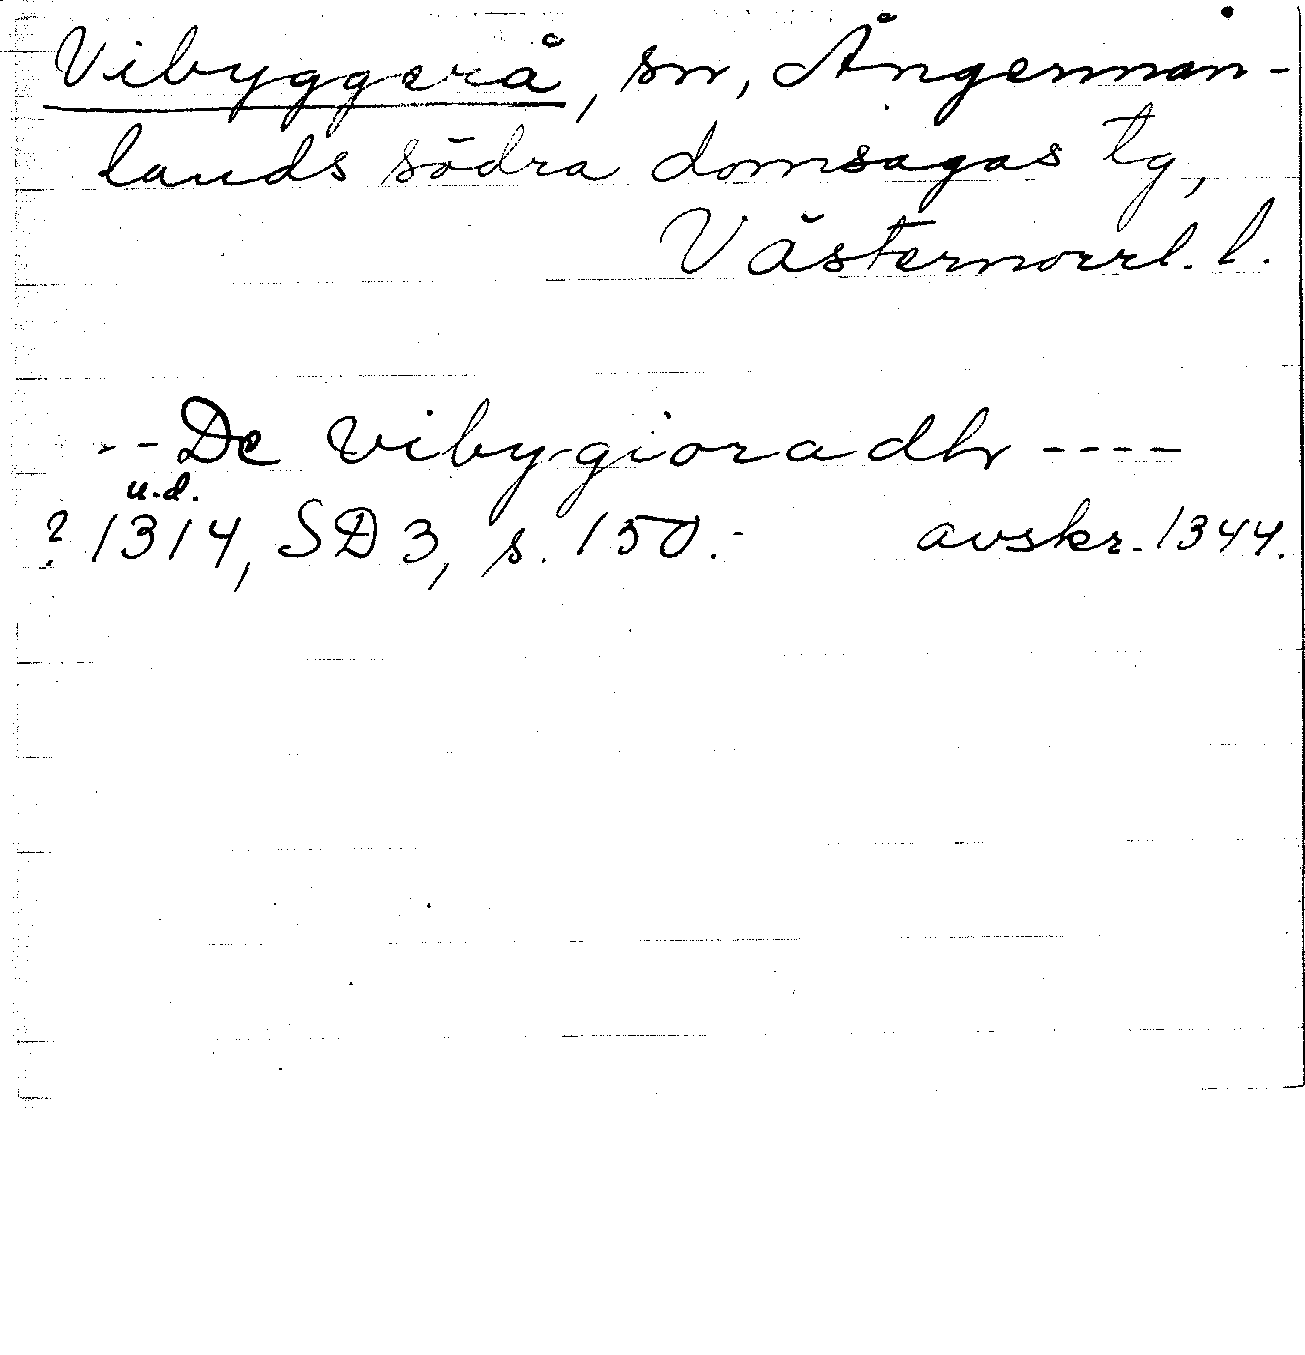 Vibyggerå, sn, Ångerman-
lands södra domsagas tg,
Västernorrl. l.
-- De vibygioradh ----
u.d.
? 1314, SD 3, s. 150.- avskr. 1344.